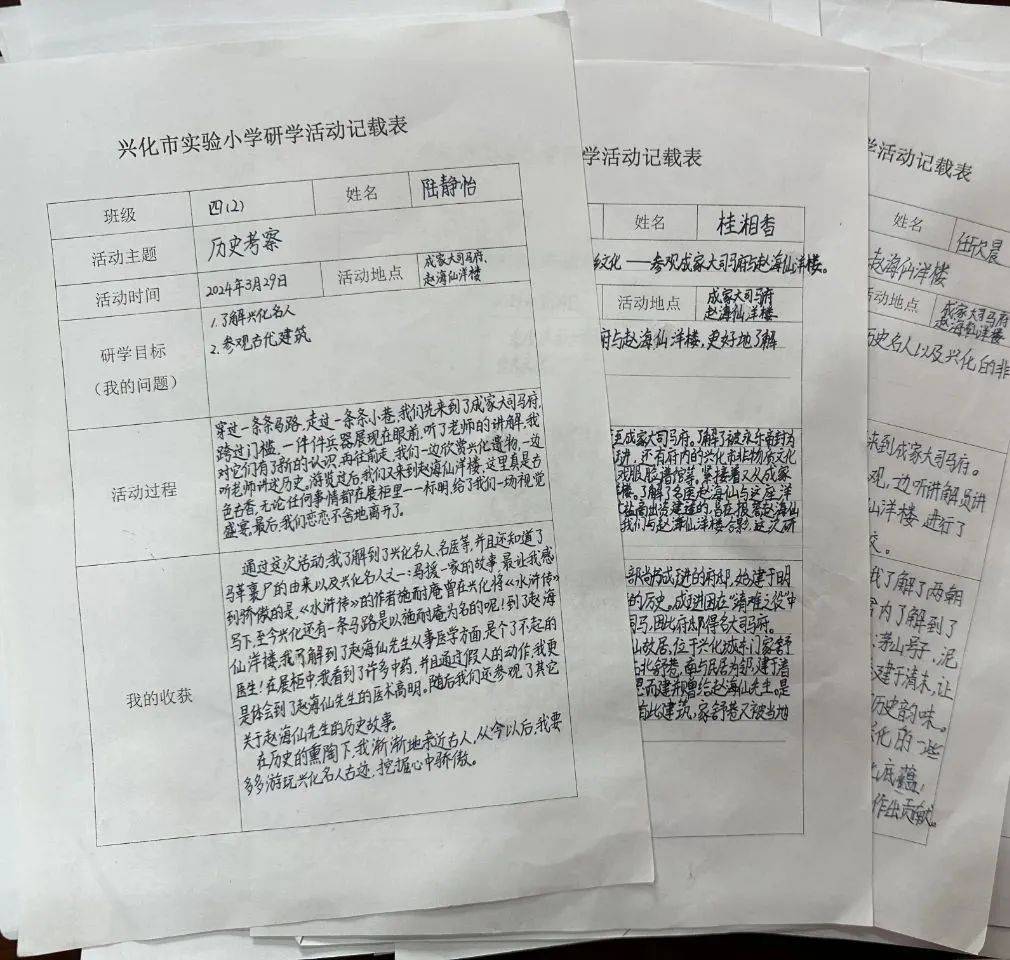 兴化市实验小学研学活动记载表
班级 四(2) 姓名 陆静怡
活动主题 历史考察
活动时间 2024年3月29日 活动地点 成家大司马府、
赵海仙洋楼
研学目标
(我的问题)
1.了解兴化名人
2.参观古代建筑
活动过程
穿过一条条马路,走过一条条小巷,我们先来到了成家大司马府,
跨过门槛,一件件兵器展现在眼前,听了老师的讲解,我
对它们有了新的认识,再往前走,我们一边欣赏兴化遗物,一边
听老师讲述历史。游览过后,我们又来到赵海仙洋楼,这里真是古
色古香,无论任何事情都在展柜里一一标明,给了我们一场视觉
盛宴,最后,我们恋恋不舍地离开了。
我的收获
通过这次活动,我了解到了兴化名人、名医等,并且还知道了
马革裹尸的由来以及兴化名人之一:马援一家的故事,最让我感
到骄傲的是,《水浒传》的作者施耐庵曾在兴化将《水浒传》
写下,至今兴化还有一条马路是以施耐庵为名的呢!到了赵海
仙洋楼,我了解到了赵海仙先生从事医学方面,是个了不起的
医生!在展柜中,我看到了许多中药,并且通过假人的动作,我更
是体会到了赵海仙先生的医术高明。随后我们还参观了其它
关于赵海仙先生的历史故事。
在历史的熏陶下,我渐渐地亲近古人,从今以后,我要
多多游玩兴化名人古迹,挖掘心中骄傲。
学活动记载表
姓名 桂湘香
文化——参观成家大司马府与赵海仙洋楼。
活动地点 成家大司马府
赵海仙洋楼
府与赵海仙洋楼,更好地了解
至成家大司马府。了解了被永乐帝封为
还有府内的兴化市非物质文化
紧接着又从成家
楼。了解了名医赵海仙与这座洋
出资建造的,旨在报答赵海仙
我们与赵海仙洋楼合影,这次研
部尚书成琎的府邸,始建于明
的历史。成琎因在“靖难之役”中
司马,因此府邸得名大司马府。
山故居,位于兴化城东门家舒
北舒巷,南与民居为邻,建于清
恩而建并赠给赵海仙先生。是
有此建筑,家舒巷又被当地
学活动记载表
姓名 任欣晨
赵海仙洋楼
活动地点 成家大司马府
赵海仙洋楼
历史名人以及兴化的非
来到成家大司马府。
观,边听讲解员讲
仙洋楼,进行了
我了解了两朝
内了解到了
茅山号子,泥
建于清末,让
历史韵味。
化的一些
底蕴,
作出贡献。